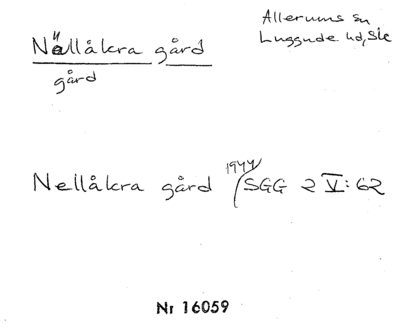 Nällåkra gård
gård
Allerums sn
Luggude hd, Sk
Nellåkra gård 1944/SGG 2 V:62
Nr 16059